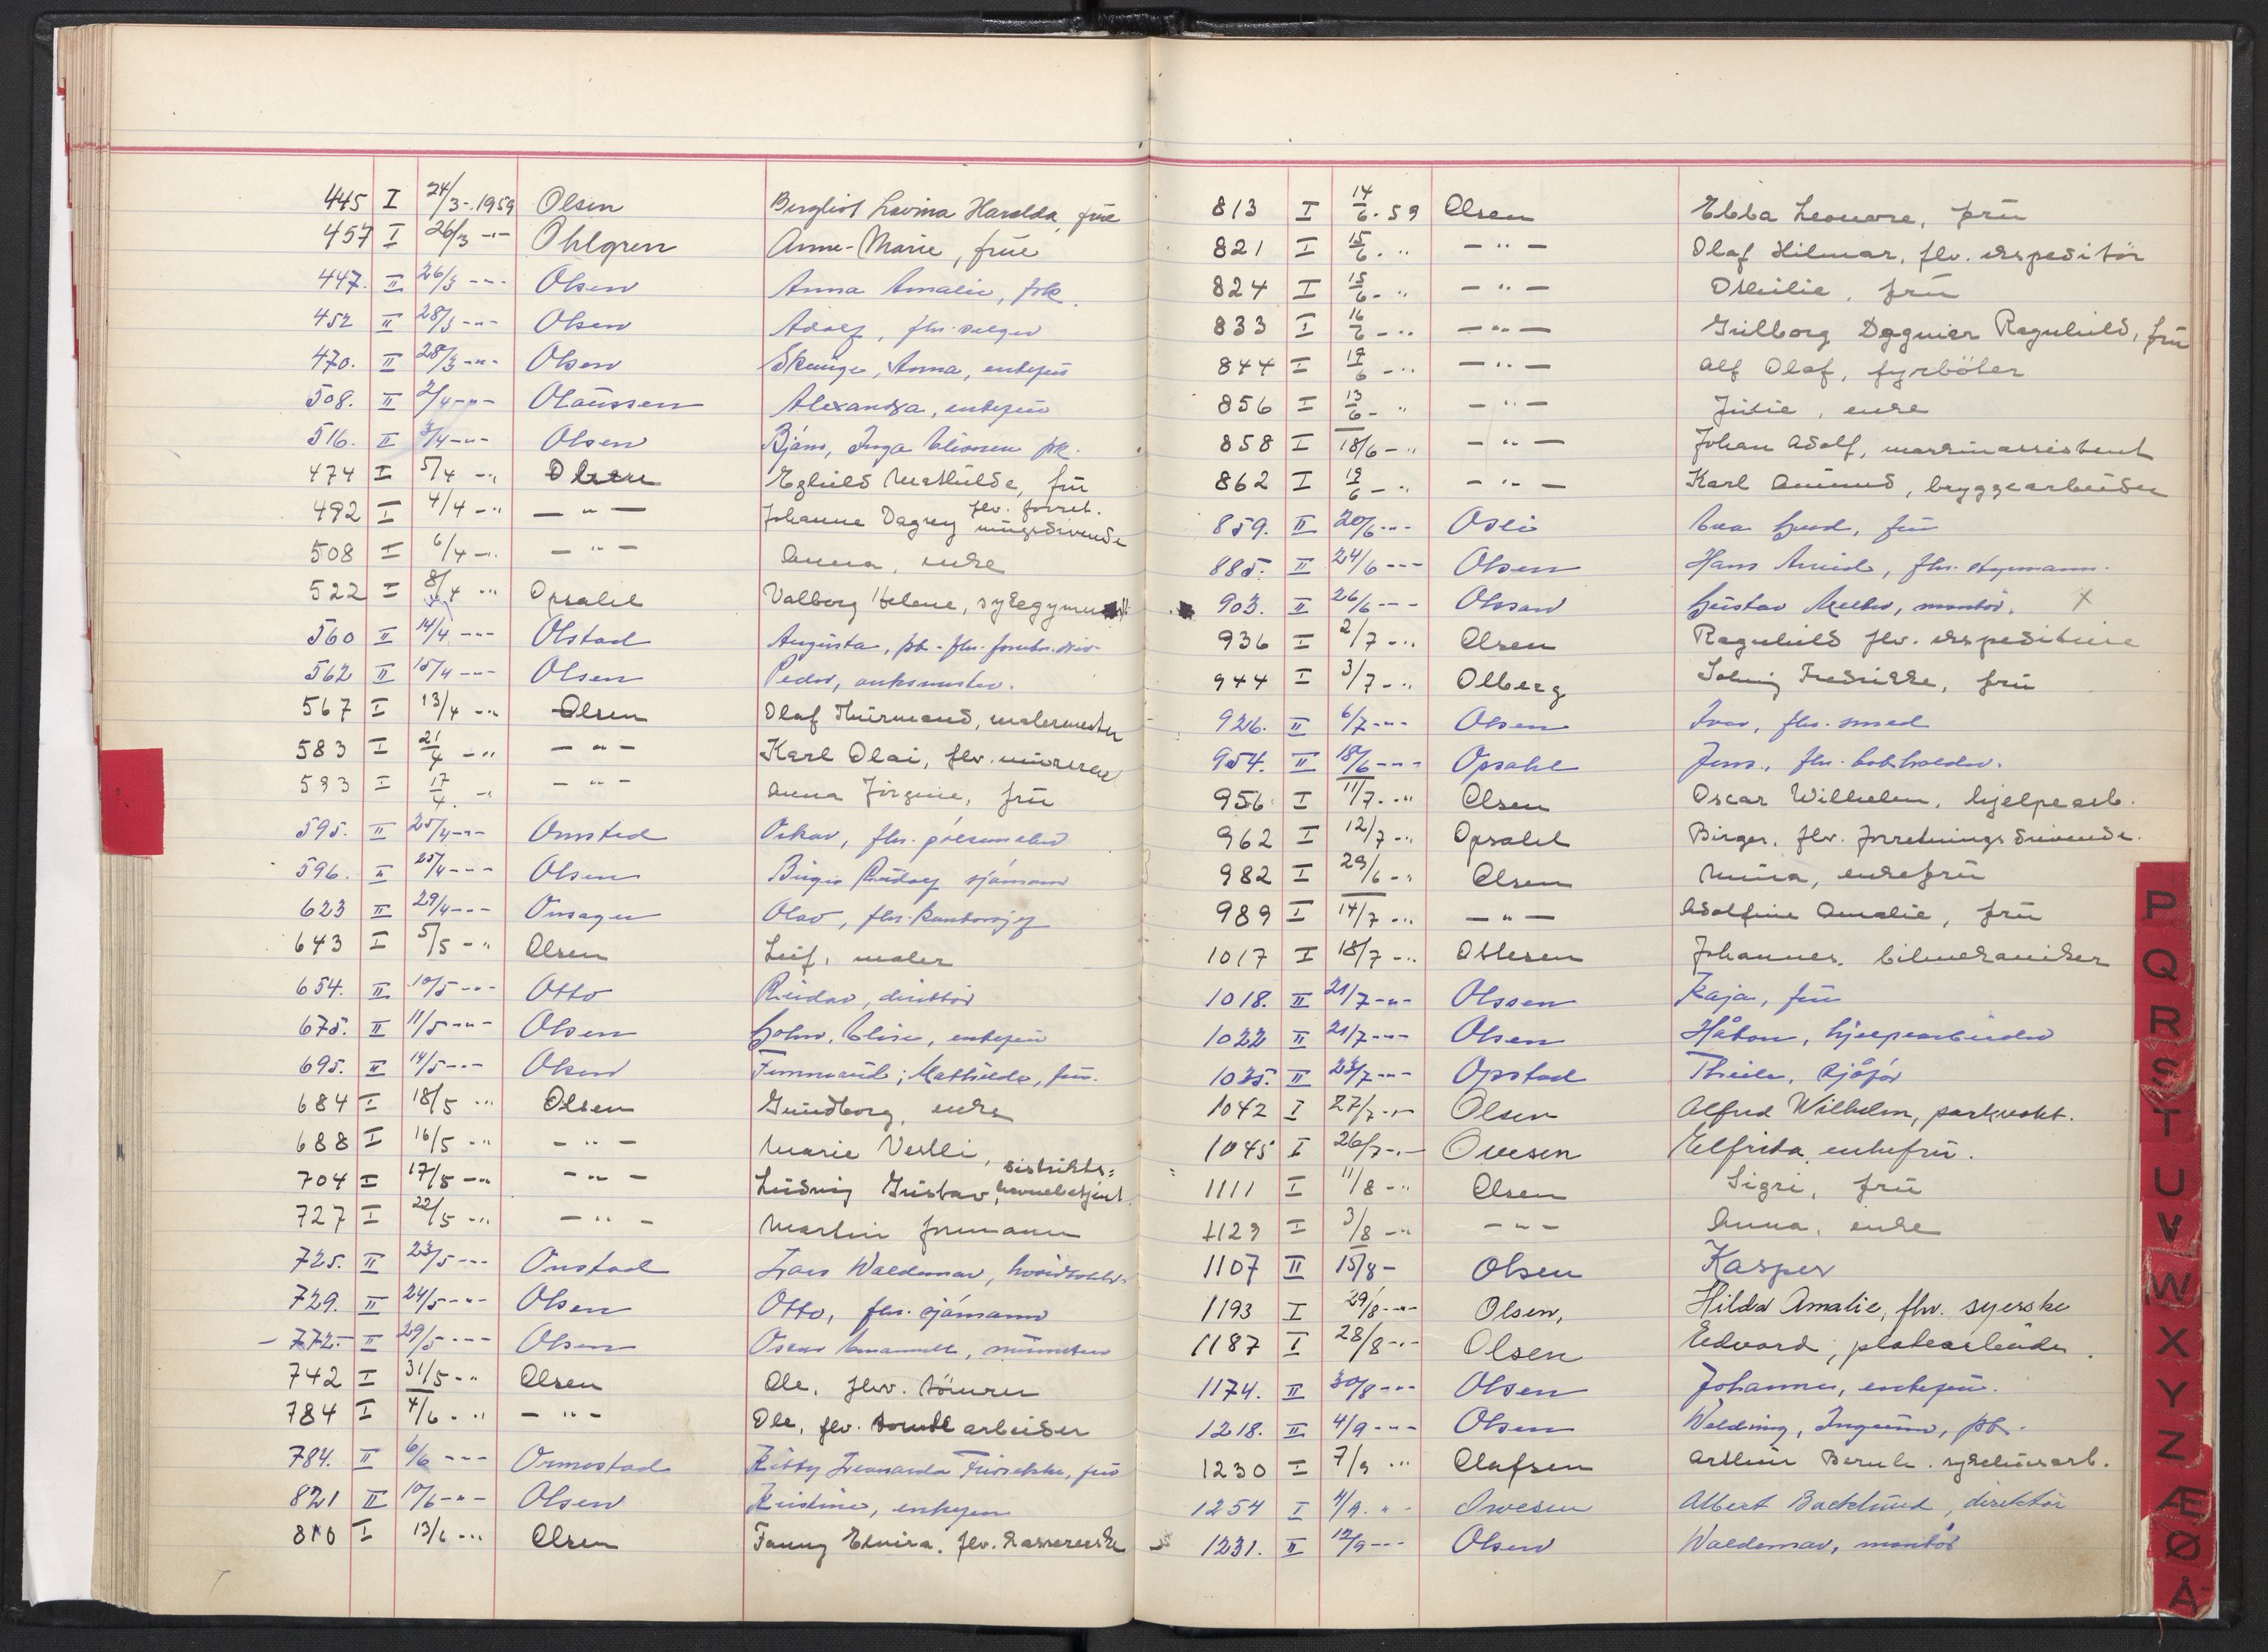 445 I 24/3-.1959 Olsen Bergliot Lovina Haralda, frue
457 I 26/3 -"- Ohlgren Anne-Marie, frue
447. II 26/3 -"- Olsen Anna Amalie, frk.
452 II 28/3 -"- Olsen Adolf, fhv. selger
470. II 28/3 -"- Olsen Skauge, Anna, enkefru
508. II 2/4 -"- Olaussen Alexandra, enkefru
516. II 3/4 -"- Olsen Bjans, Inga frk.
474 I 5/4 -" Olsen Eghild Mathilde, fru
492 I 4/4 -" - " - Johanne Dagny flv. forret. ningsdrivende
508 I 6/4 -" - " - Anna, enke
522 I 8/4 -" Opsahl Valborg Helene, sykegymnast
560 II 14/4 -"- Olstad Augusta, frk. fhv. forretn. driv.
562 II 15/4 -"- Olsen Peder,
567 I 13/4 -" Olsen Olaf Thurmand, malermester
583 I 21/4 -" - " - Karl Olai, flv. murer
593 I 17/4. -" - " - Anna Jörgine, fru
595. II 25/4 -"- Omsted Oskar, fhv. pölsemaker
596. II 25/4 -"- Olsen Birger Rudolf sjömann
623 II 29/4 -"- Onsager Olav, fhv. kontorsjef
643 I 5/5 -" Olsen Leif, maler
654. II 10/5 -"- Otto Reidar, direktör
675. II 11/5 -"- Olsen Elise, enkefru
695. II 14/5 -"- Olsen Mathilde, fru.
684 I 18/5 -" Olsen Gundborg, enke
688 I 16/5 -" - " - Marie Vestli,
704 I 17/5 -" - " - Ludvig Gustav, distrikts= havnebetjent
727 I 22/5 -" - " - Martin formann
725. II 23/5 -"- Onstad Lars Waldemar,
729. II 24/5 -"- Olsen Otto, fhv. sjömann
772. II 29/5 -"- Olsen Oscar Emanuel, murmester
742 I 31/5 -" Olsen Ole, flv. tömrer
784 I 4/6 -" - " - Ole, flv. tomtearbeider
784. II 6/6 -"- Ormestad Kitty Leonarda Fredrikke, fru
821 II 10/6 -"- Olsen Kristine, enkefru
810 I 13/6 -" Olsen Fanny Elvira. flv. kassererske
813 I 14/6. 59 Olsen Ebba Leonore, fru
821 I 15/6. " - " - Olaf Hilmar, flv. ekspeditör
824 I 15/6- " - " - Othilie, fru
833 I 16/6 -" - " - Gullborg Dagmar Ragnhild, fru
844 I 17/6 -" - " - Alf Olaf, fyrböter
856 I 13/6- " - " - Julie, enke
858 I 18/6 -" - " - Johan Adolf, maskinassistent
862 I 19/6 -" - " - Karl Amund, bryggearbeider
859. II 20/6 -"- Osei Eva Gerd, fru
885. II 24/6 -"- Olsen Hans Arvid, fhv. styrmann.
903. II 26/6 -"- Olssen Gustav Melker, montör. X
936 I 2/7 -" Olsen Ragnhild flv. ekspeditrise
944 I 3/7 -" Olberg Solveig Fredrikke, fru
926. II 6/7 -"- Olsen Ivar, fhv. smed
954. II 18/6 -"- Opsahl Jens, fhv. bokholder.
956 I 11/7. -" Olsen Oscar Wilhelm, hjelpearb.
962 I 12/7 -" Opsahl Birger, flv. forretningsdrivende.
982 I 29/6 -" Olsen Mina, enkefru
989 I 14/7 -" - " - Adolfine Amalie, fru
1017 I 18/7 -" Ottesen Johannes, bilmekaniker
1018. II 21/7 -"- Olssen Kaja, fru
1022 II 21/7 -"- Olsen Håkon, hjelpearbeider
1035. II 23/7 -"- Opstad Thrile, sjåför
1042 I 27/7 -"- Olsen Alfred Wilhelm, parkvakt.
1045 I 26/7 -"- Ovesen Elfrida enkefru.
1111 I 11/8 -" Olsen Sigri, fru
1129 I 3/8 -" - " - Anna, enke
1107 II 15/8 - Olsen Kasper
1193 I 29/8 -"- Olsen, Hilda Amalie, fhv. syerske
1187 I 28/8 -"- Olsen Edvard, platearbeider.
1174. II 30/8 -"- Olsen Johanne, enkefru.
1218. II 4/9 -"- Olsen Weldring, Ingunn, frk.
1230 I 7/9 -" Olafsen Arthur Bernh. sykehusarb.
1254 I 11/9. " - Owesen Albert Backlund, direktör
1231. II 12/9 -"- Olsen Waldemar, montör
P
Q
R
S
T
U
V
W
X
Y
Z
Æ
Ø
Å